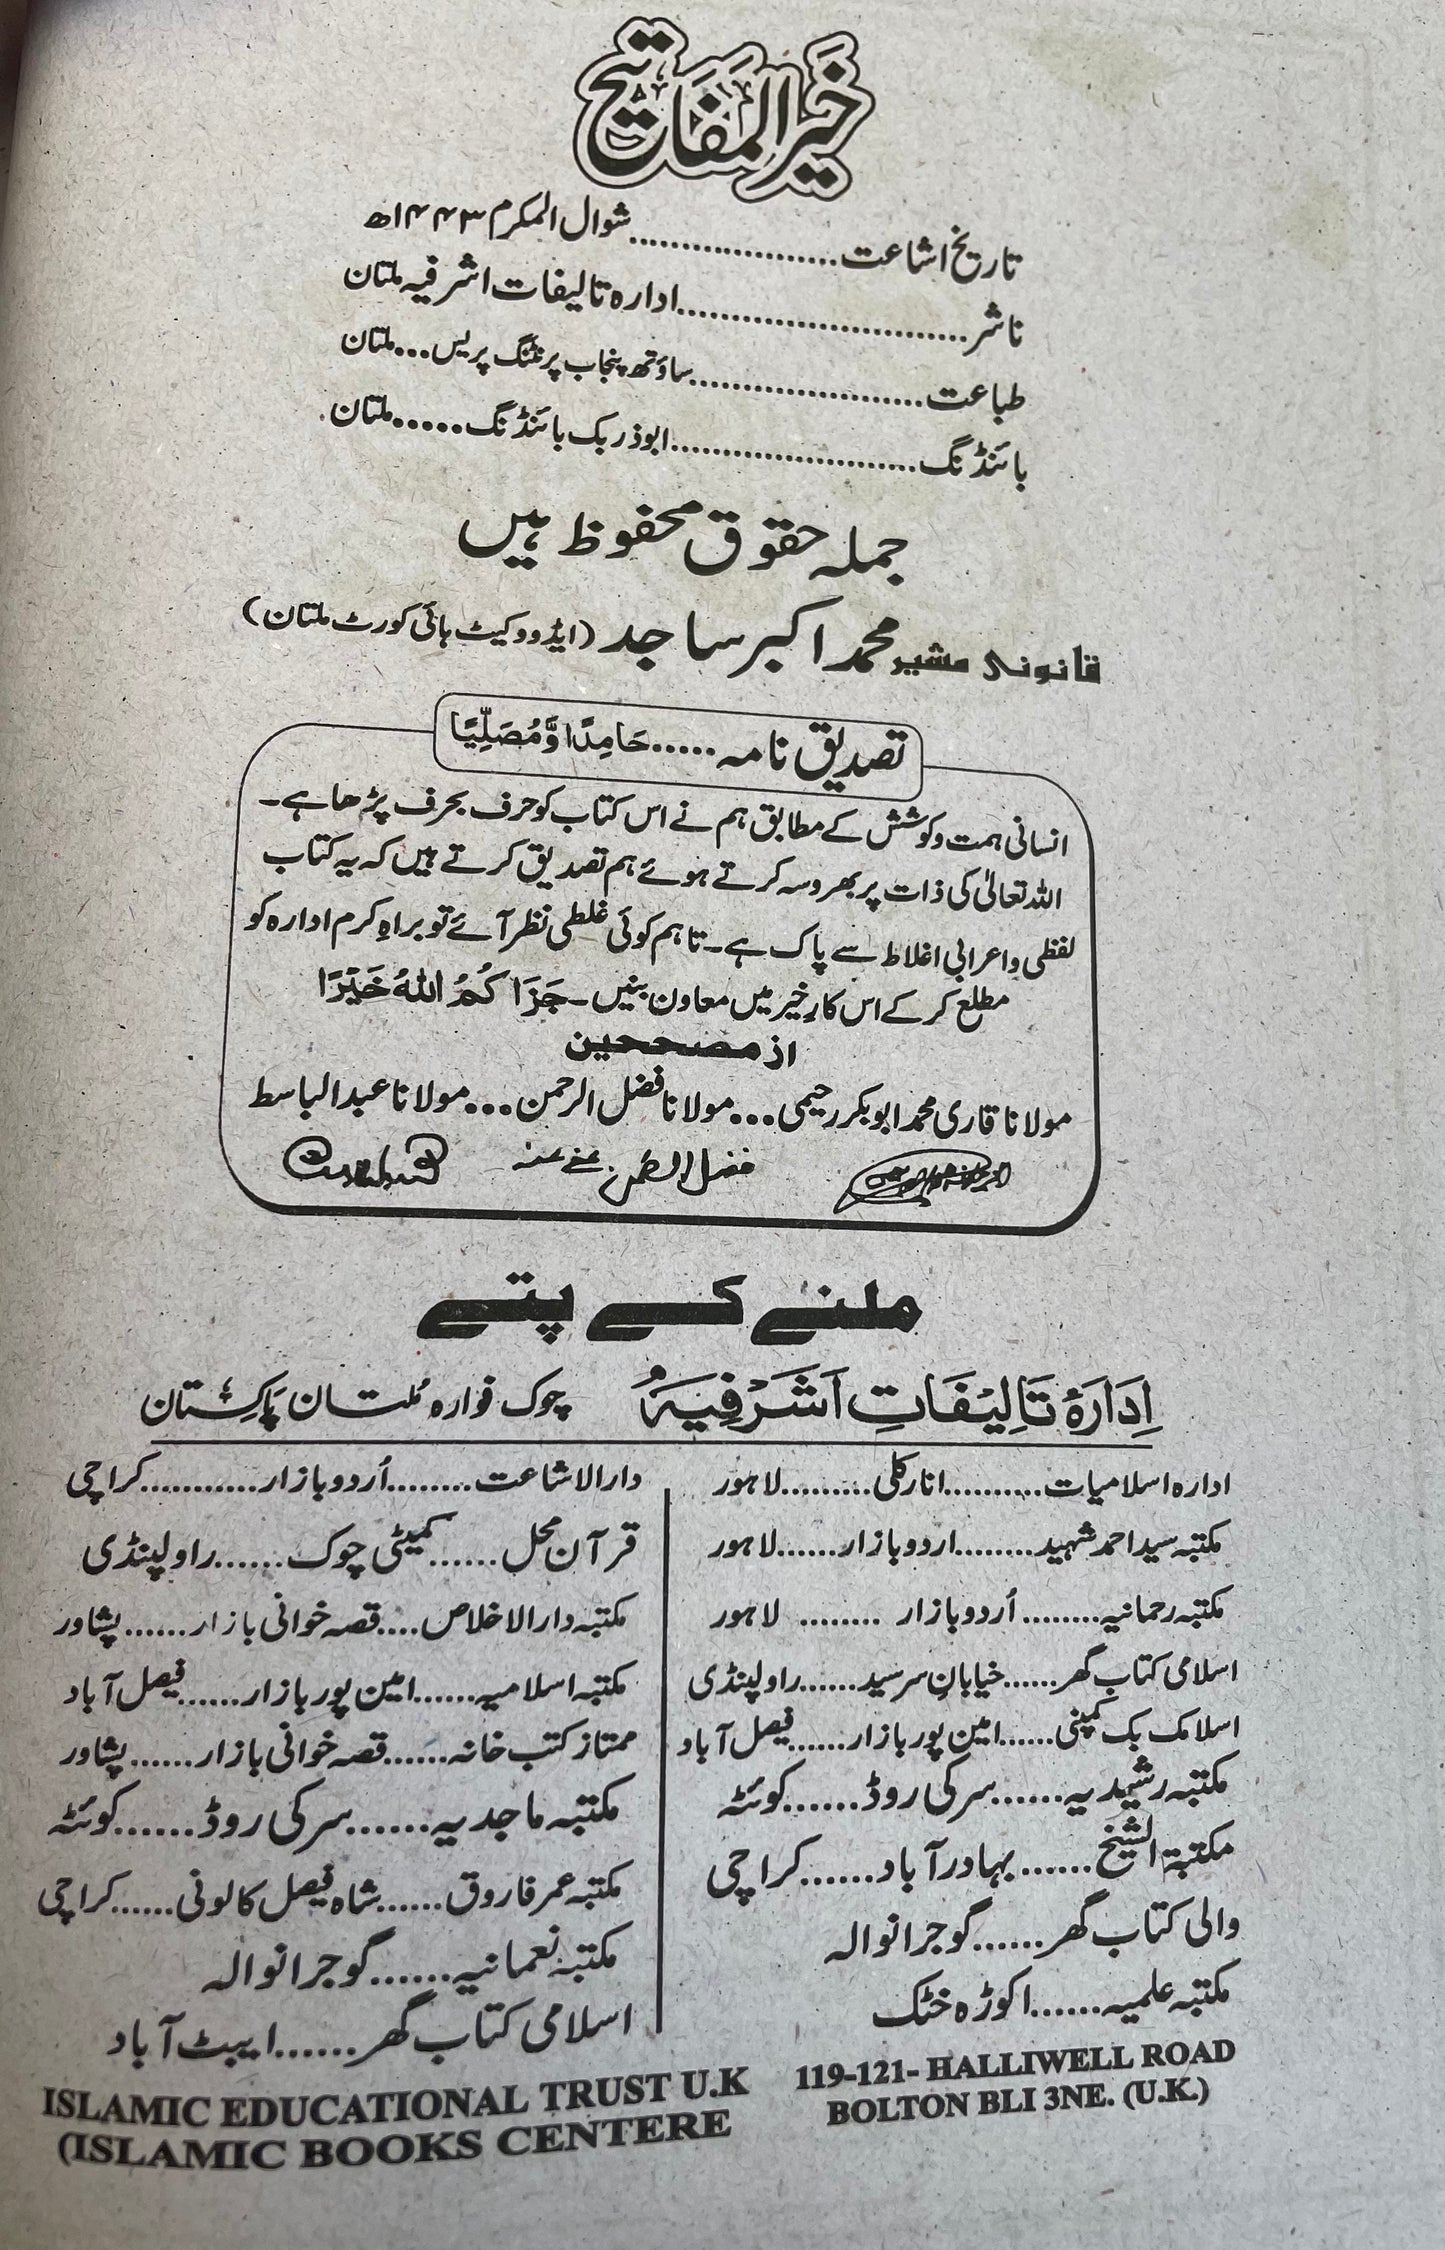 خَيرُ المَفَاتِيح
تاریخ اشاعت....................شوال المکرم ۱۴۴۳ھ
ناشر..........................ادارہ تالیفات اشرفیہ ملتان
طباعت......................ساؤتھ پنجاب پرنٹنگ پریس...ملتان
بائنڈنگ......................ابوذر بک بائنڈنگ......ملتان
جملہ حقوق محفوظ ہیں
قانونی مشیر محمد اکبر ساجد (ایڈووکیٹ ہائی کورٹ ملتان)
تصدیق نامہ.....حَامِدًا وَّمُصَلِّيًا
انسانی ہمت وکوشش کے مطابق ہم نے اس کتاب کو حرف بحرف پڑھا ہے۔
اللہ تعالیٰ کی ذات پر بھروسہ کرتے ہوئے ہم تصدیق کرتے ہیں کہ یہ کتاب
لفظی واعرابی اغلاط سے پاک ہے۔ تاہم کوئی غلطی نظر آئے تو براہِ کرم ادارہ کو
مطلع کر کے اس کارِ خیر میں معاون بنیں۔ جَزَاكُمُ اللهُ خَيْرًا
از مصححین
مولانا قاری محمد ابوبکر رحیمی...مولانا فضل الرحمن...مولانا عبدالباسط
فضل الرحمن عفی عنہ
ملنے کے پتے
اِدَارَهٔ تَالِيْفَاتِ اَشْرَفِيَهْ چوک فوارہ مُلتان پَاکِستان
ادارہ اسلامیات..........انارکلی.........لاہور
مکتبہ سید احمد شہید........اردو بازار......لاہور
مکتبہ رحمانیہ........اُردو بازار ........ لاہور
اسلامی کتاب گھر......خیابانِ سرسید......راولپنڈی
اسلامک بک کمپنی......امین پور بازار......فیصل آباد
مکتبہ رشیدیہ......سرکی روڈ......کوئٹہ
مکتبة الشیخ......بہادر آباد......کراچی
والی کتاب گھر......گوجرانوالہ
مکتبہ علمیہ......اکوڑہ خٹک
دارالاشاعت........اُردو بازار...........کراچی
قرآن محل......کمیٹی چوک......راولپنڈی
مکتبہ دارالاخلاص....قصہ خوانی بازار......پشاور
مکتبہ اسلامیہ......امین پور بازار......فیصل آباد
ممتاز کتب خانہ......قصہ خوانی بازار......پشاور
مکتبہ ماجدیہ......سرکی روڈ......کوئٹہ
مکتبہ عمر فاروق......شاہ فیصل کالونی......کراچی
مکتبہ نعمانیہ......گوجرانوالہ
اسلامی کتاب گھر......ایبٹ آباد
ISLAMIC EDUCATIONAL TRUST U.K
(ISLAMIC BOOKS CENTERE
119-121- HALLIWELL ROAD
BOLTON BLI 3NE. (U.K.)